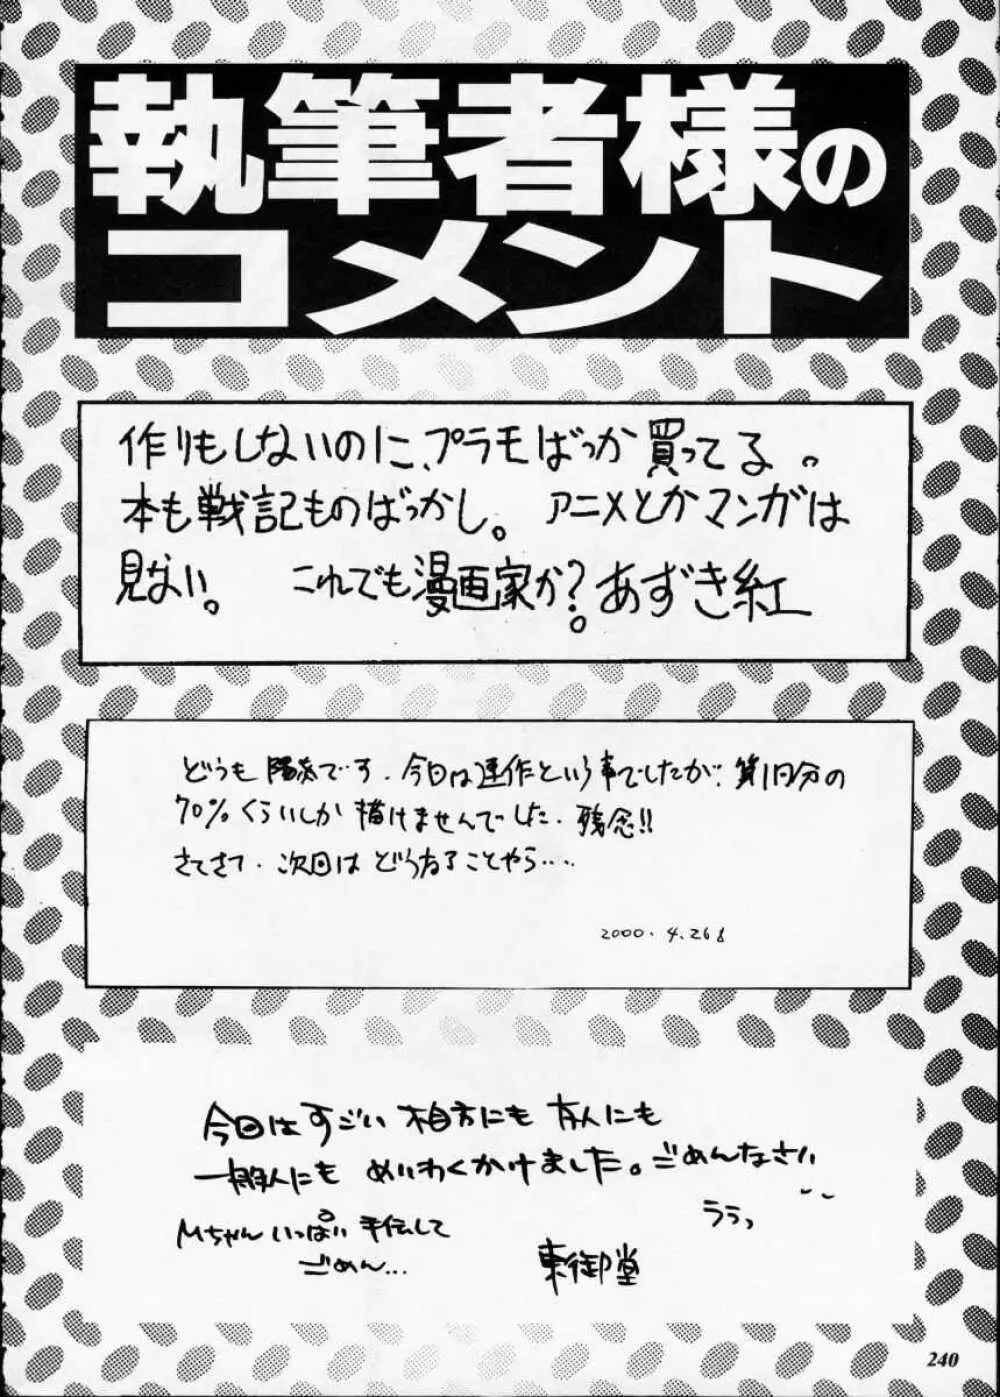 執筆者様の
コメント
作りもしないのに、プラモばっか買ってる。
本も戦記ものばっかし。 アニメとかマンガは
見ない。 これでも漫画家か?。あずき紅
どうも 陽炎です. 今日は連作という事でしたが. 第1回分の
70%くらいしか描けませんでした. 残念!!
さてさて. 次回は どうなることやら....
2000. 4.26
今回はすごい 相方にも 友人にも
一般人にも めいわくかけました。ごめんなさい
ううっ
Mちゃん いっぱい 手伝して
ごめん...
東御堂
240